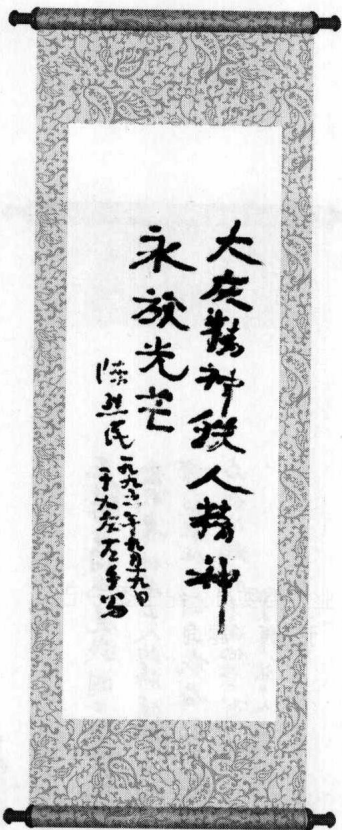 大庆精神铁人精神
永放光芒
陈烈民一九九六年九月十九日
于大庆左手写